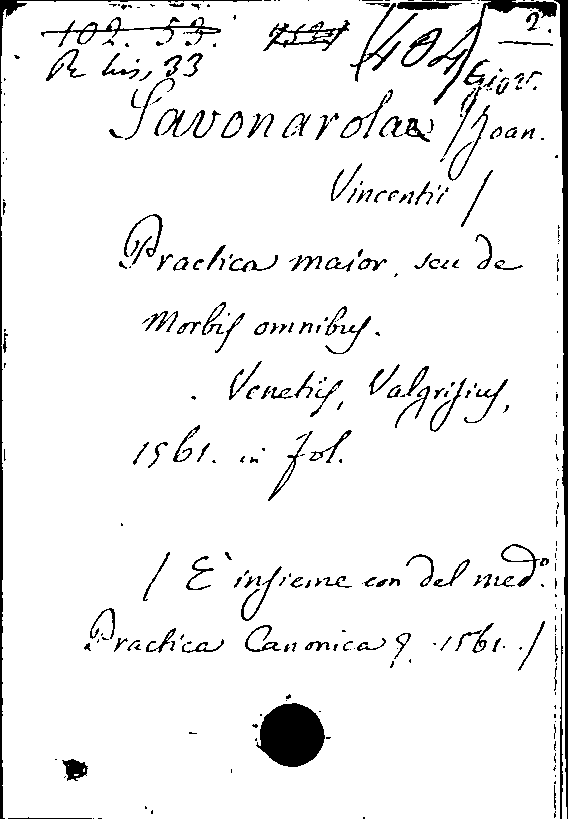 2.
102. 53. (404)
33 Giov.
Savonarolae / Joan.
Vincentii /
Practica maior, seu de
Morbis omnibus.
Venetiis, Valgrisius,
1561. in fol.
/ E' insieme con del med.o
Practica Canonica &. 1561. /